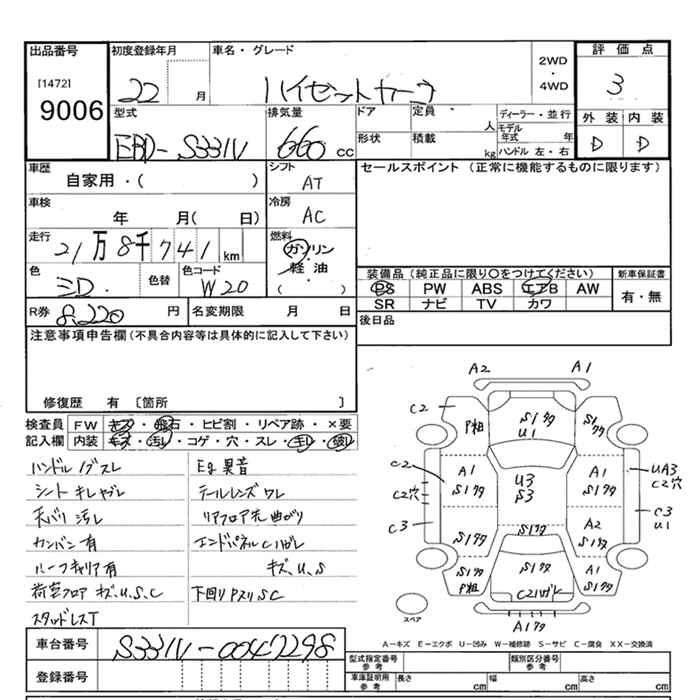 出品番号
[1472]
9006
初度登録年月
22 月
車名・グレード
ハイゼットカーゴ
2WD
・
4WD
評価点
3
型式
EBD-S331V
排気量
660 cc
ドア
定員
人
ディーラー・並行
モデル年式 年
ハンドル 左・右
形状
積載
kg
外装 内装
D D
車歴
自家用・( )
シフト
AT
セールスポイント (正常に機能するものに限ります)
車検
年 月( 日)
冷房
AC
走行
21万8千741km
燃料
ガソリン
・
軽油
( )
色
色替
色コード
W20
装備品(純正品に限り○をつけてください)
新車保証書
PS PW ABS エアB AW
有・無
SR ナビ TV カワ
R券
8,220 円
名変期限 月 日
後日品
注意事項申告欄(不具合内容等は具体的に記入して下さい)
修復歴 有 [箇所 ]
検査員 FW キズ・飛石・ヒビ割・リペア跡・×要
記入欄 内装 キズ・汚レ・コゲ・穴・スレ・キレ・破レ
ハンドル
Eg異音
シート キレ
テールレンズ ワレ
天バリ 汚レ
リアフロア先 曲がり
カンバン有
エンドパネル
ルーフキャリア有
キズ、U、S
荷室フロア キズ、U、S、C
下回り Pスリ SC
スタッドレスT
A2 A1
C2
P粗
S1ワタ
U1
S1ワタ
C2
C2穴
C3
A1
S1ワタ
U3
S3
A1
S1ワタ
UA3
C2穴
C3
U1
S1ワタ
S1ワタ
A2
S1ワタ
S1ワタ
P粗
S1ワタ
A1
S1ワタ
スペア
A1ワタ
A-キズ E-エクボ U-凹み W-補修跡 S-サビ C-腐食 XX-交換済
車台番号
S331V-0047298
登録番号
型式指定番号
参考
類別区分番号
参考
車庫証明用
参考
長さ cm
幅 cm
高さ cm